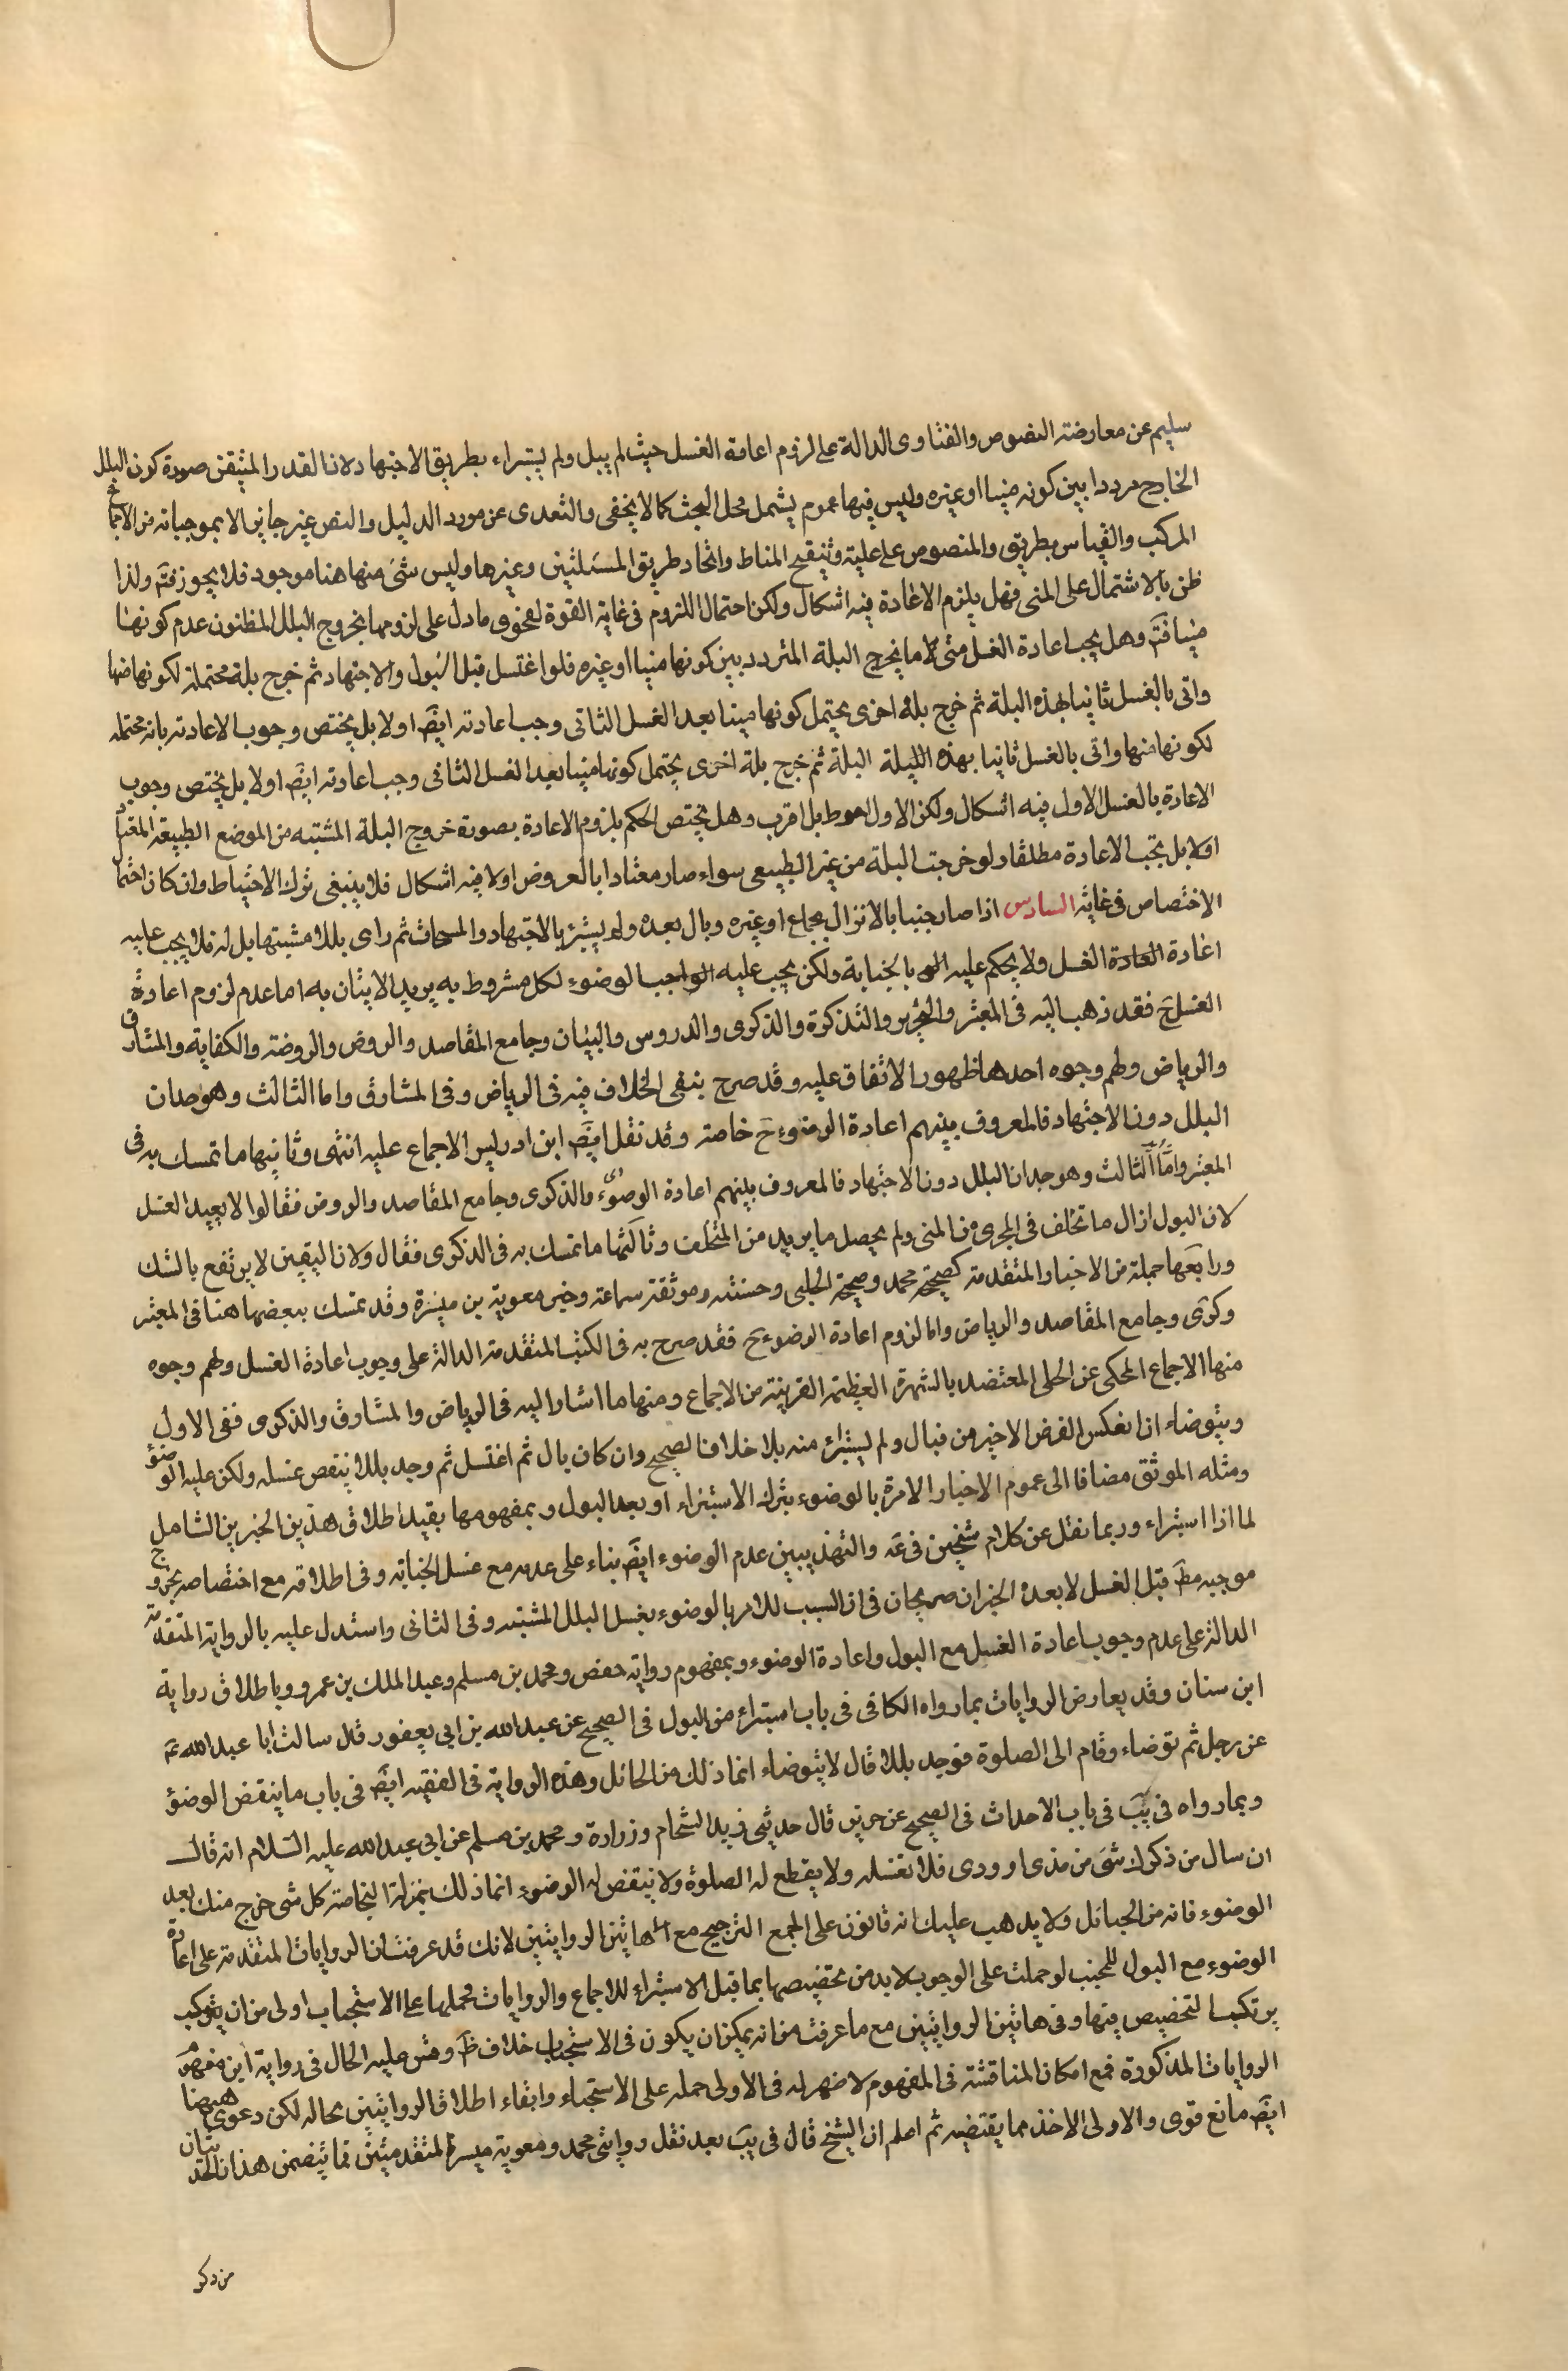 سليم عن معارضة النصوص والفتاوى الدالة على لزوم اعادة الغسل حيث لم يبل ولم يستبراء بطريق الاجتهاد لان القدر المتيقن صورة كون البلل
الخارج مرددا بين كونه منيا او غيره وليس فيها عموم يشمل محل البحث كما لا يخفى والتعدى عن مورد الدليل والنص غير جايز الا بموجباته من الاجماع
المركب والقياس بطريق والمنصوص على علية وتنقيح المناط واتحاد طريق المسئلتين وغيرها وليس شئ منها هنا موجود فلا يجوز فتم ولذا
ظن بالاشتمال على المنى فهل يلزم الاعادة فيه اشكال ولكن احتمال اللزوم فى غاية القوة لفحوى ما دل على لزومها بخروج البلل المظنون عدم كونها
منيا فتم وهل يجب اعادة الغسل متى لاما يخرج البلة المتردد بين كونها منيا او غيره فلو اغتسل قبل البول والاجتهاد ثم خرج بلة محتملة لكونها منيا
واتى بالغسل ثانيا لهذه البلة ثم خرج بلة اخرى يحتمل كونها منيا بعد الغسل الثانى وجب اعادته ايضً اولا بل يختص وجوب الاعادته بانه محتمله
لكونها منها واتى بالغسل ثانيا بهذه الليلة البلة ثم خرج بلة اخرى يحتمل كونها منيا بعد الغسل الثانى وجب اعادته ايضً اولا بل يختص وجوب
الاعادة بالغسل الاول فيه اشكال ولكن الاول احوط بل اقرب وهل يختص الحكم بلزوم الاعادة بصورة خروج البلة المشتبه من الموضع الطبيعة المعتبر
اولا بل يجب الاعادة مطلقا ولو خرجت البلة من غير الطبيعى سواء صار معتادا بالعروض اولا فيه اشكال فلا ينبغى ترك الاحتياط وان كان احتما
الاختصاص فى غاية السادس اذا صار جنبا بالانزال بجماع او غيره وبال بعده ولم يستبرئ بالاجتهاد والمسحات ثم راى بللا مشتبها بل له فلا يجب عليه
اعادة العادة الغسل ولا يحكم عليه بالجنابة ولكن يجب عليه الواجب الوضوء لكل مشروط به يريد الاتيان به اما عدم لزوم اعادة
الغسل ح فقد ذهب اليه فى المعتبر والتحرير والتذكرة والذكرى والدروس والبيان وجامع المقاصد والروض والروضة والكفاية والمشارق
والرياض ولهم وجوه احدها ظهور الاتفاق عليه وقد صرح بنفى الخلاف فيه فى الرياض وفى المشارق واما الثالث وهو جدان
البلل دون الاجتهاد فالمعروف بينهم اعادة الوضوء ح خاصة وقد نقل ايضً ابن ادريس الاجماع عليه انتهى وثانيها ما تمسك به فى
المعتبر وامّا الثالث وهو جدان البلل دون الاجتهاد فالمعروف بينهم اعادة الوضوء والذكرى وجامع المقاصد والروض فقالوا لا يعيد الغسل
لان البول ازال ما تخلف فى المجرى من المنى ولم يحصل ما يزيد من المتخلف وثالثها ما تمسك به فى الذكرى فقال ولان اليقين لا يرتفع بالشك
ورابعها جملة من الاخبار المتقدمة كصحيحة محمد وصحيحة الحلبى وحسنته وموثقة سماعة وخبر معوية بن ميسرة وقد تمسك ببعضها هنا فى المعتبر
وكرى وجامع المقاصد والرياض واما لزوم اعادة الوضوء ح فقد صرح به فى الكتب المتقدمة الدالة على وجوب اعادة الغسل ولهم وجوه
منها الاجماع المحكى عن الحلى المعتضد بالشهرة العظيمة القريبة من الاجماع ومنها ما اشار اليه فى الرياض والمشارق والذكرى ففى الاول
ويتوضاء اذا بعكس الفرض الاخير من فبال ولم يستبرئ منه بلا خلاف الصحيح وان كان بال ثم اغتسل ثم وجد بللا ينتقص غسله ولكن عليه الوضوء
ومثله الموثق مضافا الى عموم الاخبار الامرة بالوضوء بترك الاستبراء او بعد البول وبمفهومها يقيد اطلاق هذين الخبرين الشامل
لما اذا استبراء وربما نقل عن كلام شيخين فى عة والتهذيبين عدم الوضوء ايضً بناء على عدمه مع غسل الجنابة وفى اطلاقه مع اختصاصه بخروج
موجبه مطً قبل الغسل لا بعده الخبران صريحان فى ان السبب للامر بالوضوء بغسل البلل المشتبه وفى الثانى واستدل عليه بالرواية المتقدمة
الدالة على عدم وجوب اعادة الغسل مع البول واعادة الوضوء وبمفهوم رواية حفص ومحمد بن مسلم وعبد الملك بن عمرو وباطلاق رواية
ابن سنان وقد يعارض الروايات بما رواه الكافى فى باب استبراء من البول فى الصحيح عن عبد الله بن ابى يعفور قال سالت ابا عبد الله عً
عن رجل ثم توضاء وقام الى الصلوة فوجد بللا قال لا يتوضاء انما ذلك من الحائل وهذه الرواية فى الفقيه ايضً فى باب ما ينقض الوضؤ
وبما رواه فى يب فى باب الاحداث فى الصحيح عن حريز قال حدثنى زيد الشحام وزرارة ومحمد بن مسلم عن ابى عبد الله عليه السّلام انه قال
ان سال من ذكرك شئ من مذى او ودى فلا تغسله ولا يقطع له الصلوة ولا ينقض له الوضوء انما ذلك بمنزلة النخامة كل شئ خرج منك بعد
الوضوء فانه من الحبائل ولا يذهب عليك انه قانون على الجمع الترجيح مع هاتين الروايتين لانك قد عرفت ان الروايات المتقدمة على اعادة
الوضوء مع البول للمجنب لو حملت على الوجوب لابد من تخصيصها بما قبل الاستبراء للاجماع والروايات فحملها على الاستحباب اولى من ان يتركب
يرتكب التخصيص فيها وفى هاتين الروايتين مع ما عرفت من انه يمكن ان يكون فى الاستحباب خلاف ظً وقس عليه الحال فى رواية ابن مفهوم
الروايات المذكورة فمع امكان المناقشة فى المفهوم لا ضهر له فى الاولى حمله على الاستحباء وابقاء اطلاق الروايتين بحاله لكن دعوى ههنا
ايضً مانع قوى والاولى الاخذ بما يقتضيه ثم اعلم ان الشيخ قال فى يب بعد نقل روايتى محمد ومعوية ميسرة المتقدمتين فما يتضمن هذان الحديثان
من ذكر